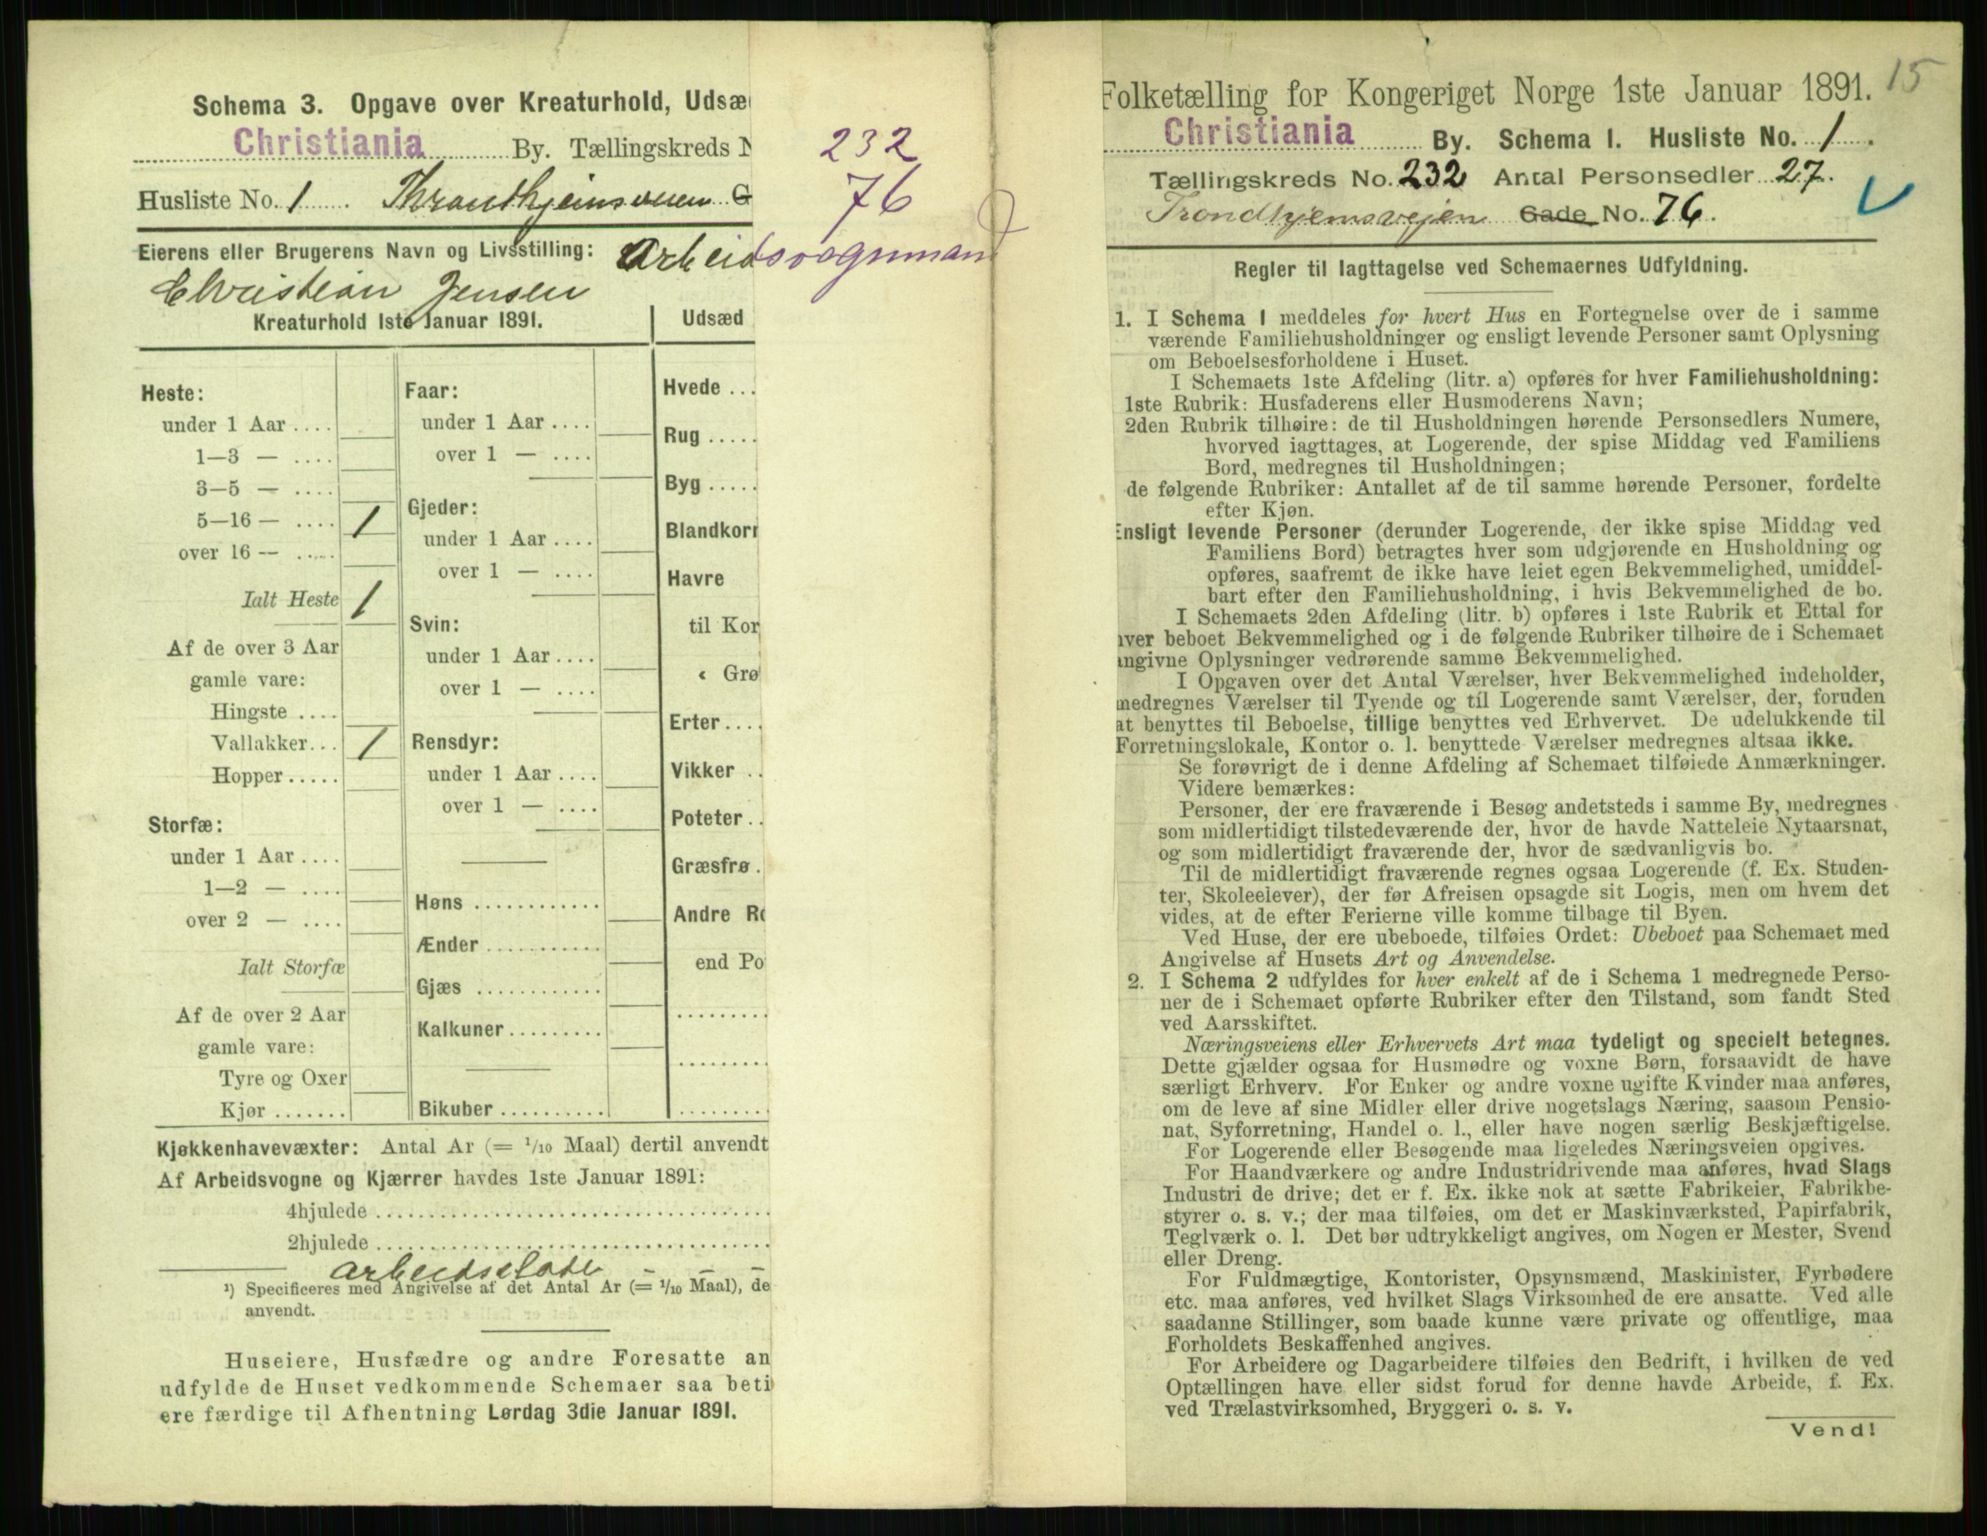 Schema 3. Opgave over Kreaturhold, Udsæ
Christiania By. Tællingskreds N 232
Husliste No. 1 Throndhjemsveien G 76
Eierens eller Brugerens Navn og Livsstilling: Arbeidsvognmand
Christian Jensen
Kreaturhold 1ste Januar 1891.
Heste:
under 1 Aar ....
1—3 — ....
3—5 — ....
5—16 — .... 1
over 16 — .....
Ialt Heste 1
Af de over 3 Aar
gamle vare:
Hingste ....
Vallakker... 1
Hopper .....
Storfæ:
under 1 Aar ....
1—2 — ....
over 2 — ....
Ialt Storfæ
Af de over 2 Aar
gamle vare:
Tyre og Oxer
Kjør .......
Faar:
under 1 Aar ....
over 1 — ....
Gjeder:
under 1 Aar ....
over 1 — ....
Svin:
under 1 Aar ....
over 1 — ....
Rensdyr:
under 1 Aar ....
over 1 — ....
Høns ............
Ænder ...........
Gjæs ............
Kalkuner.........
Bikuber ..........
Udsæd
Hvede ...
Rug .....
Byg .....
Blandkorn
Havre
til Kor
« Grø
Erter ....
Vikker ..
Poteter ..
Græsfrø .
Andre Ro
end Po
Kjøkkenhavevæxter: Antal Ar (= 1/10 Maal) dertil anvendt
Af Arbeidsvogne og Kjærrer havdes 1ste Januar 1891:
4hjulede ........
2hjulede ........
arbeidsslæde – – –
¹) Specificeres med Angivelse af det Antal Ar (= 1/10 Maal), de
anvendt.
Huseiere, Husfædre og andre Foresatte an
udfylde de Huset vedkommende Schemaer saa beti
ere færdige til Afhentning Lørdag 3die Januar 1891.
15
Folketælling for Kongeriget Norge 1ste Januar 1891.
Christiania By. Schema 1. Husliste No. 1
Tællingskreds No. 232 Antal Personsedler 27.
Trondhjemsvejen Gade No. 76.
Regler til Iagttagelse ved Schemaernes Udfyldning.
1. I Schema 1 meddeles for hvert Hus en Fortegnelse over de i samme
værende Familiehusholdninger og ensligt levende Personer samt Oplysning
om Beboelsesforholdene i Huset.
I Schemaets 1ste Afdeling (litr. a) opføres for hver Familiehusholdning:
1ste Rubrik: Husfaderens eller Husmoderens Navn;
2den Rubrik tilhøire: de til Husholdningen hørende Personsedlers Numere,
hvorved iagttages, at Logerende, der spise Middag ved Familiens
Bord, medregnes til Husholdningen;
de følgende Rubriker: Antallet af de til samme hørende Personer, fordelte
efter Kjøn.
Ensligt levende Personer (derunder Logerende, der ikke spise Middag ved
Familiens Bord) betragtes hver som udgjørende en Husholdning og
opføres, saafremt de ikke have leiet egen Bekvemmelighed, umiddel-
bart efter den Familiehusholdning, i hvis Bekvemmelighed de bo.
I Schemaets 2den Afdeling (litr. b) opføres i 1ste Rubrik et Ettal for
hver beboet Bekvemmelighed og i de følgende Rubriker tilhøire de i Schemaet
angivne Oplysninger vedrørende samme Bekvemmelighed.
I Opgaven over det Antal Værelser, hver Bekvemmelighed indeholder,
medregnes Værelser til Tyende og til Logerende samt Værelser, der, foruden
at benyttes til Beboelse, tillige benyttes ved Erhvervet. De udelukkende til
Forretningslokale, Kontor o. l. benyttede Værelser medregnes altsaa ikke.
Se forøvrigt de i denne Afdeling af Schemaet tilføiede Anmærkninger.
Videre bemærkes:
Personer, der ere fraværende i Besøg andetsteds i samme By, medregnes
som midlertidigt tilstedeværende der, hvor de havde Natteleie Nytaarsnat,
og som midlertidigt fraværende der, hvor de sædvanligvis bo.
Til de midlertidigt fraværende regnes ogsaa Logerende (f. Ex. Studen-
ter, Skoleelever), der før Afreisen opsagde sit Logis, men om hvem det
vides, at de efter Ferierne ville komme tilbage til Byen.
Ved Huse, der ere ubeboede, tilføies Ordet: Ubeboet paa Schemaet med
Angivelse af Husets Art og Anvendelse.
2. I Schema 2 udfyldes for hver enkelt af de i Schema 1 medregnede Perso-
ner de i Schemaet opførte Rubriker efter den Tilstand, som fandt Sted
ved Aarsskiftet.
Næringsveiens eller Erhvervets Art maa tydeligt og specielt betegnes.
Dette gjælder ogsaa for Husmødre og voxne Børn, forsaavidt de have
særligt Erhverv. For Enker og andre voxne ugifte Kvinder maa anføres,
om de leve af sine Midler eller drive nogetslags Næring, saasom Pensio-
nat, Syforretning, Handel o. l., eller have nogen særlig Beskjæftigelse.
For Logerende eller Besøgende maa ligeledes Næringsveien opgives.
For Haandværkere og andre Industridrivende maa anføres, hvad Slags
Industri de drive; det er f. Ex. ikke nok at sætte Fabrikeier, Fabrikbe-
styrer o. s. v.; der maa tilføies, om det er Maskinværksted, Papirfabrik,
Teglværk o. l. Det bør udtrykkeligt angives, om Nogen er Mester, Svend
eller Dreng.
For Fuldmægtige, Kontorister, Opsynsmænd, Maskinister, Fyrbødere
etc. maa anføres, ved hvilket Slags Virksomhed de ere ansatte. Ved alle
saadanne Stillinger, som baade kunne være private og offentlige, maa
Forholdets Beskaffenhed angives.
For Arbeidere og Dagarbeidere tilføies den Bedrift, i hvilken de ved
Optællingen have eller sidst forud for denne havde Arbeide, f. Ex.
ved Trælastvirksomhed, Bryggeri o. s. v.
Vend!